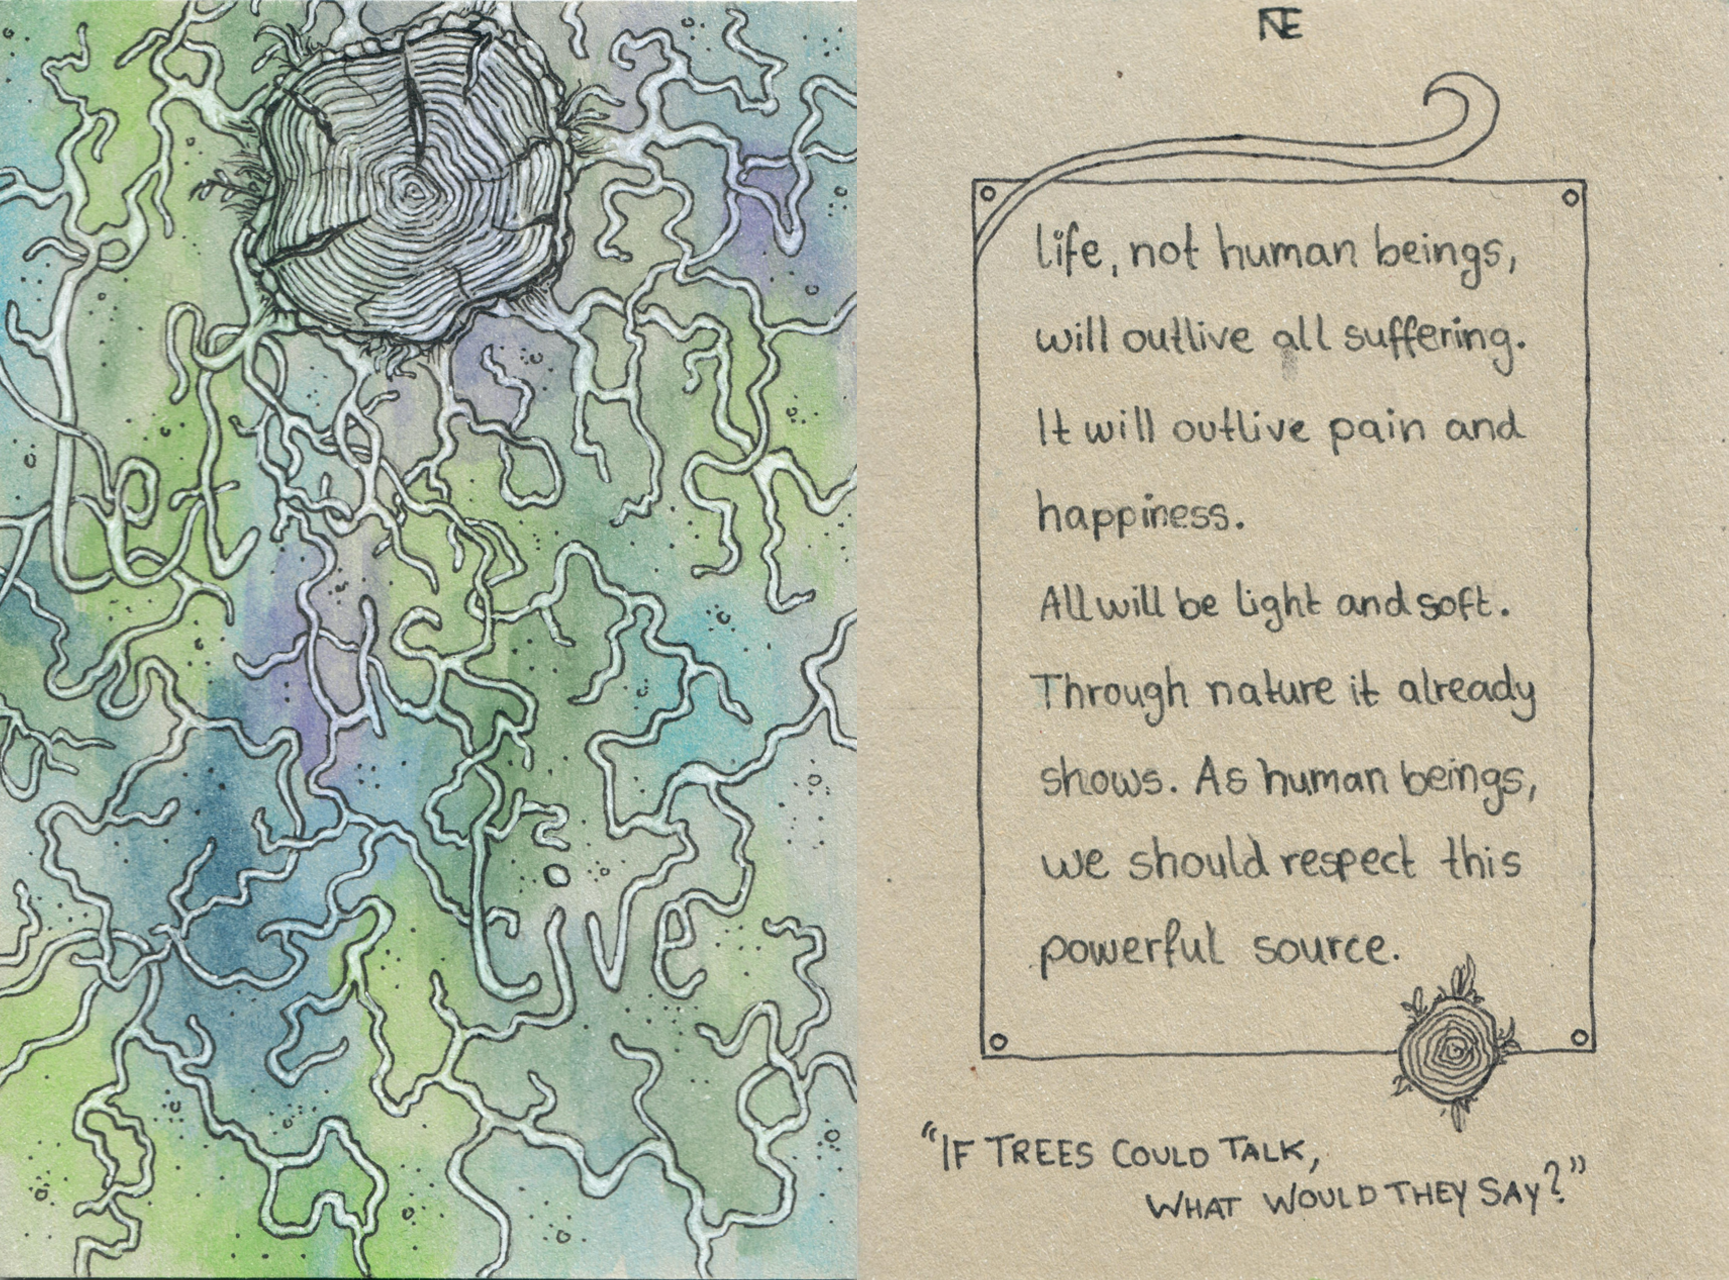 let
us
live
life, not human beings,
will outlive all suffering.
It will outlive pain and
happiness.
All will be light and soft.
Through nature it already
shows. As human beings,
we should respect this
powerful source.
"IF TREES COULD TALK,
WHAT WOULD THEY SAY?"